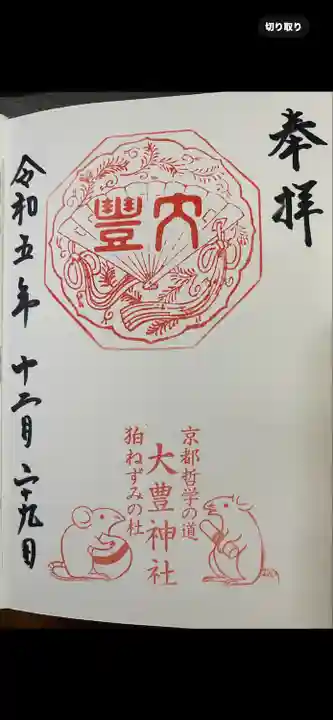 切り取り
奉拝
大豊
京都哲学の道
大豊神社
狛ねずみの杜
令和五年 十二月二十九日